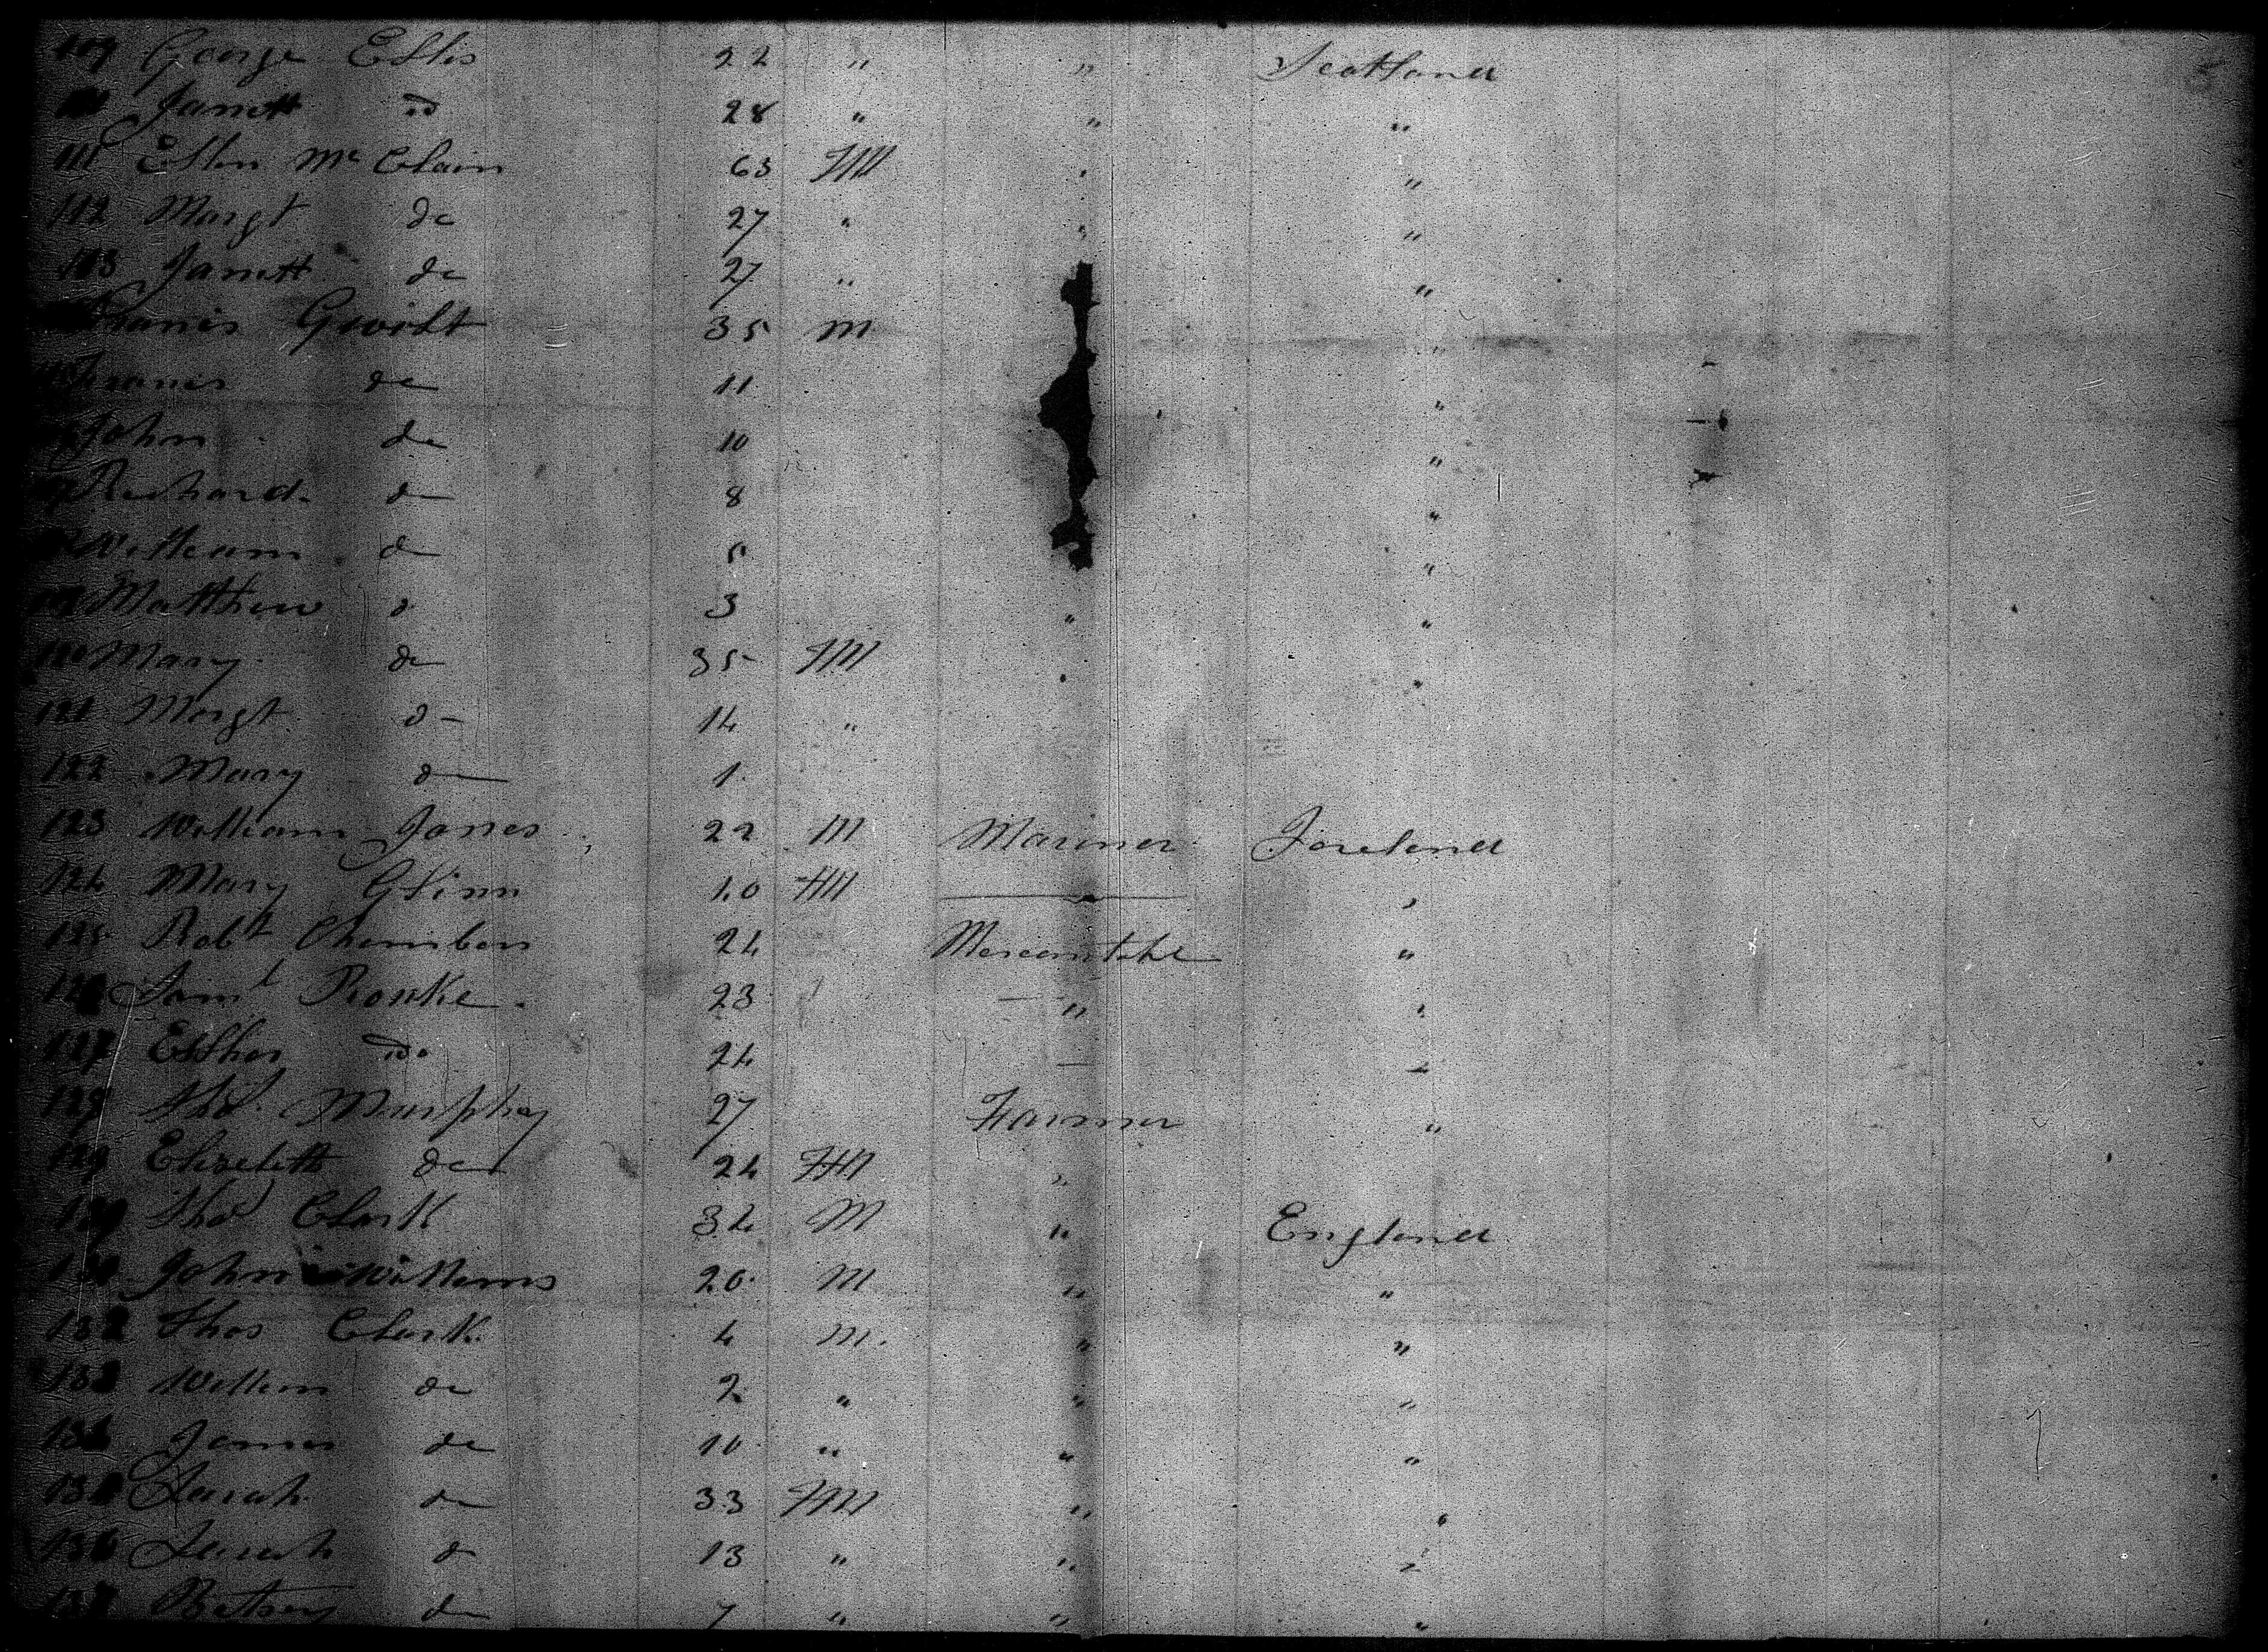 109 George Ellis 22 " " Scotland
Janett do 28 " " "
111 Ellen Mc Clain 63 FM " "
112 Margt do 27 " " "
113 Janett do 27 " "
Francis Gwilt 35 M "
Francis do 11 "
John do 10 "
Richard do 8 "
William do 5 "
Matthew do 3 " "
Mary do 35 FM " "
121 Margt do 14 "
122 Mary do 1
123 William Jones 22 M Mariner Ireland
124 Mary Glinn 10 FM "
125 Robt 24 Mercantile "
126 Saml 23 " "
127 Esther do 24
128 Thos Murphey 27 Farmer "
129 Elizabeth do 24 FM " "
Thos Clark 34 M " England
John Williams 20 M " "
132 Thos Clark 4 M. " "
133 Willem do 2 " " "
134 James do 10 " " "
135 Sarah do 33 FM " "
136 Sarah do 13 " " "
137 Betsey do 7 " " "